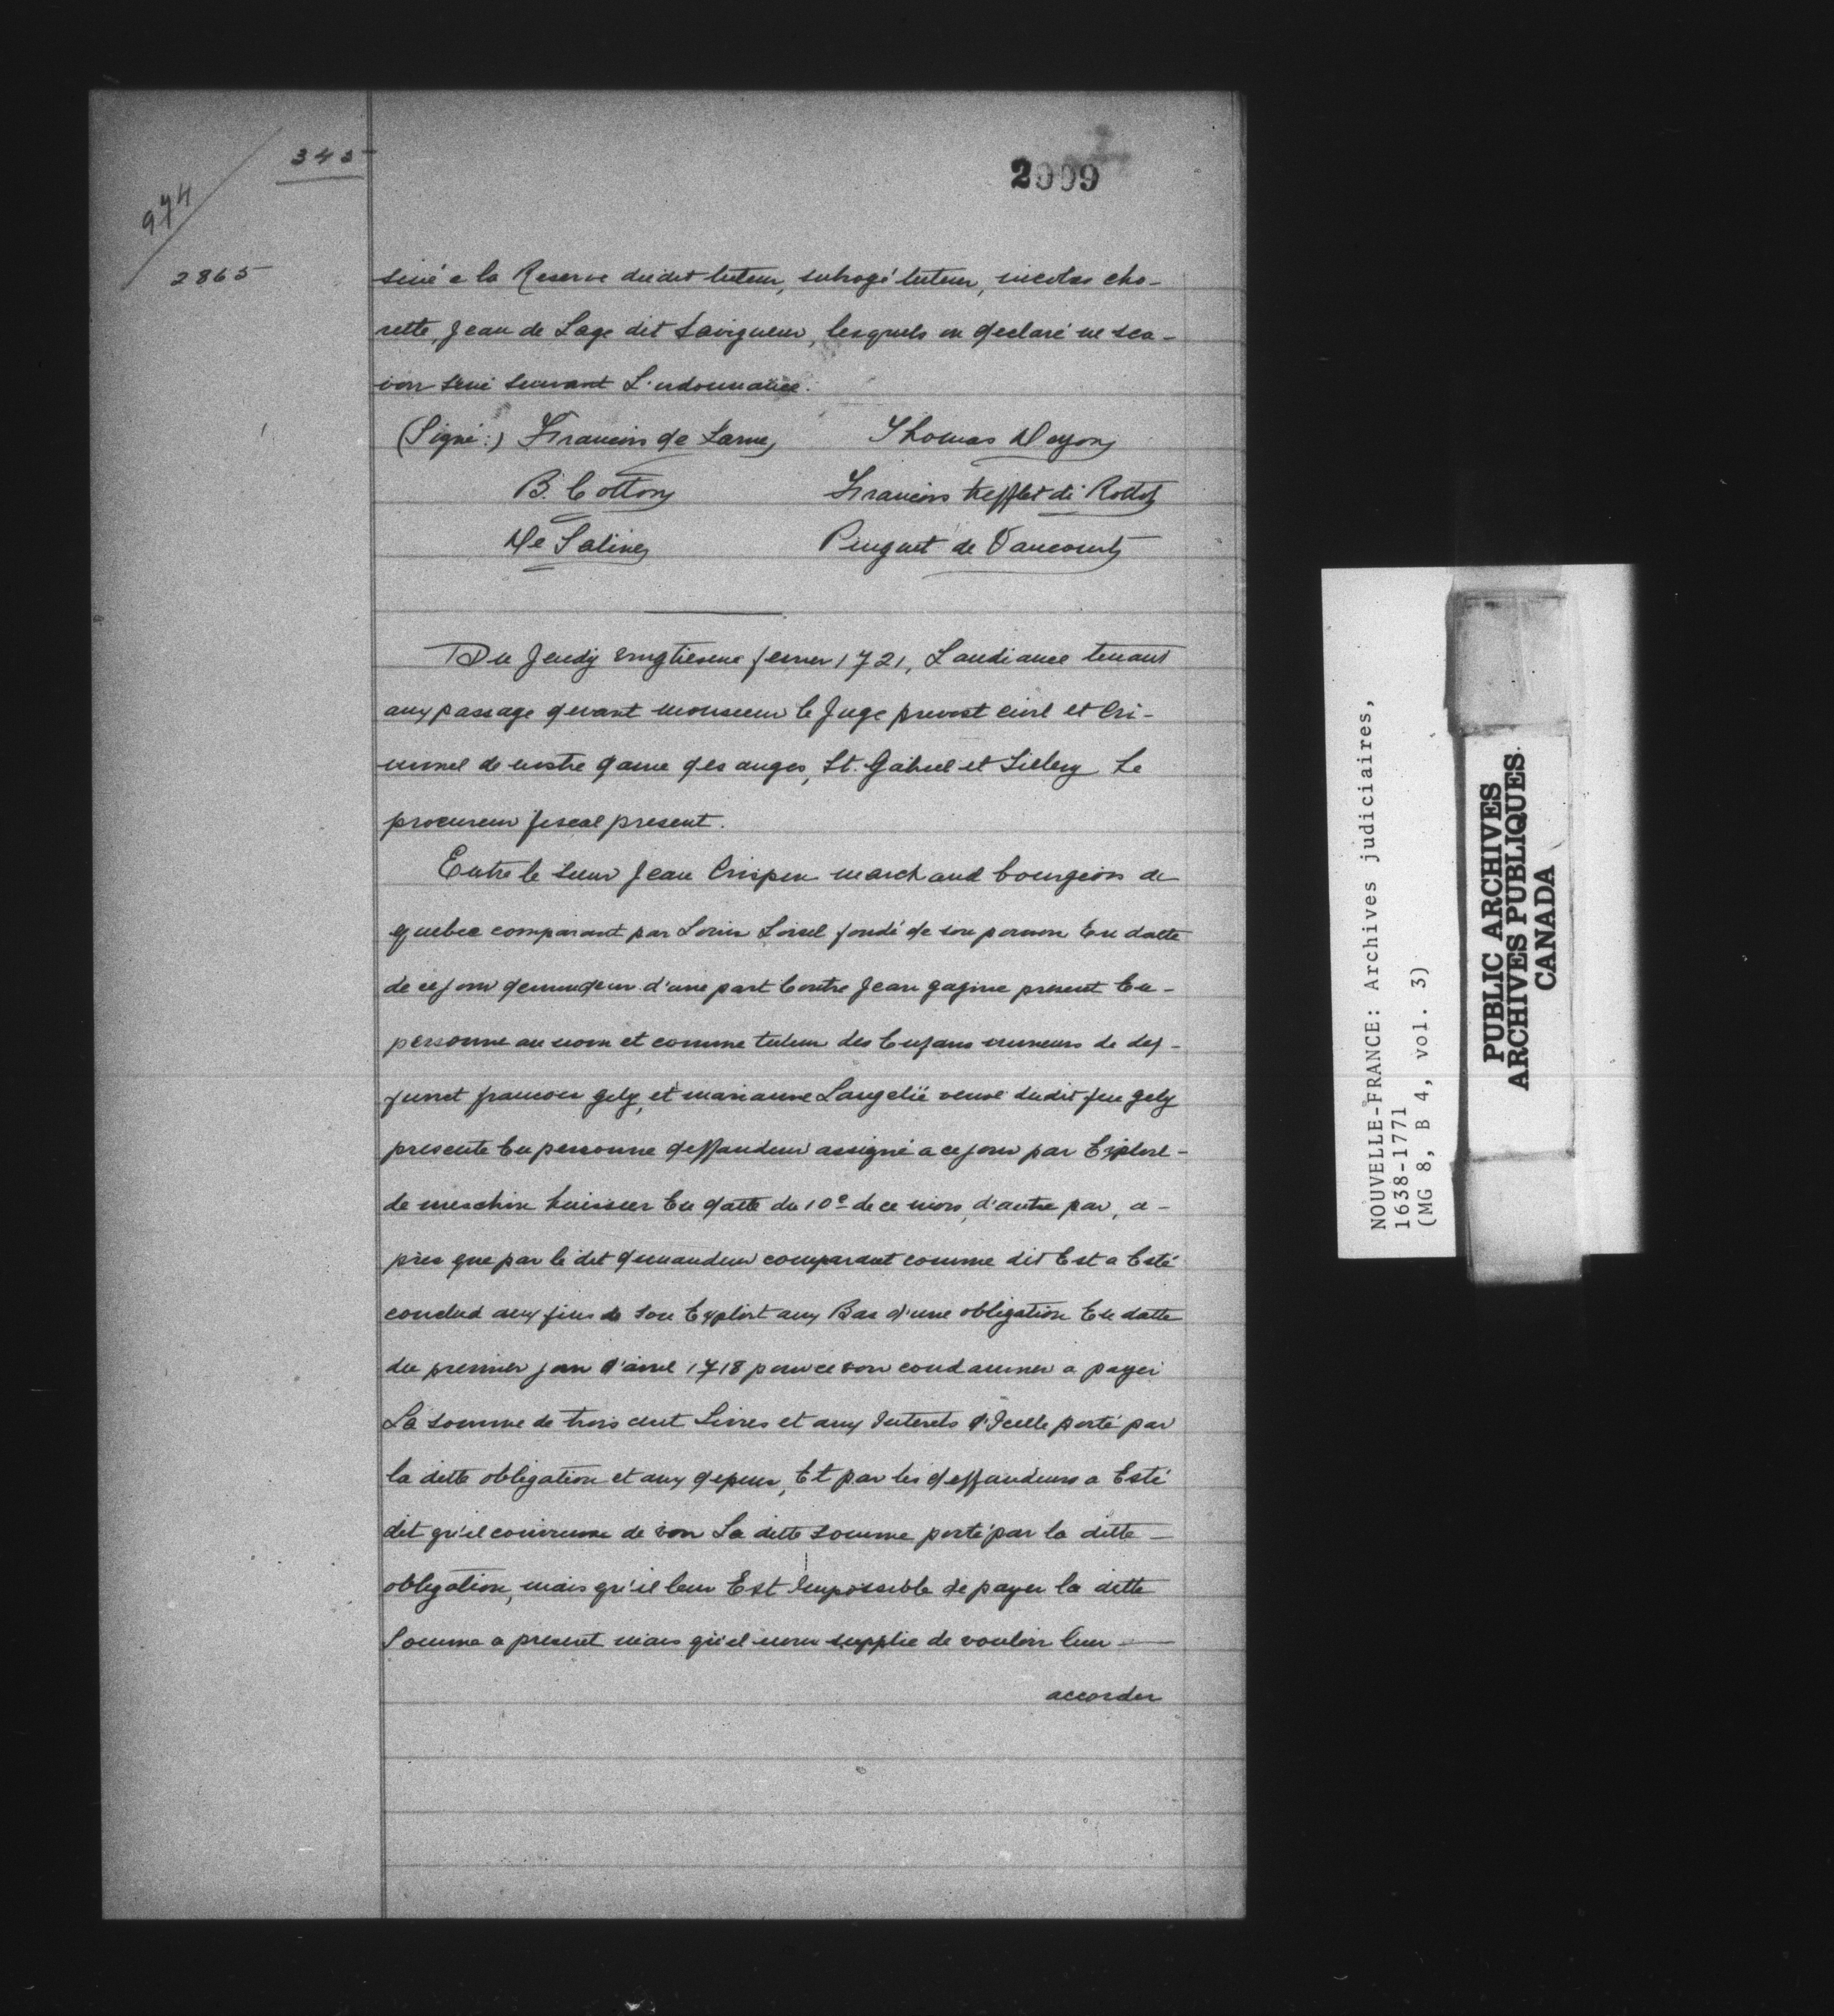 345
2009
974
2865
siné a la Reserve dudit tuteur, subrogé tuteur, nicolas cho-
rette, Jean de Lage dit Lavigueur, lesquels on declaré ne sca-
voir siné suivant L'ordonnance.
(Signé:) Francois de Larue Thomas Doyon
B. Cotton Francois trefflet di Rottot
De Saline Pinguet de Vaucourt
Du Jeudy vingtiesme fevrier 1721, Laudiance tenant
aux passage devant monsieur le Juge prevost civil et Cri-
minel de nostre dame des anges, St. Gabriel et Sillery Le
procureur fiscal present.
Entre le sieur Jean Crispin marchand bourgeois de
quebec comparant par Louis Loisel fondé de son pouvoir En datte
de ce jour demandeur d'une part Contre Jean gagnie present En-
personne au nom et comme tuteur des Enfans mineurs de def-
funct francois gely, et marianne Langelié veuve dudit feu gely
presente En personne deffandeur assigné a ce jour par Exploit-
de meschin huissier En datte du 10e de ce mois, d'autre par, a-
près que par le dit demandeur comparant comme dit Est a Esté
conclud aux fins de son Exploit aux Bas d'une obligation En datte
du premier jour d'avril 1718 pour ce voir condamner a payer
La somme de trois cent Livres et aux Interets d'Icelle porté par
la ditte obligation et aux depens, Et par les deffandeurs a Esté
dit qu'il convienne de voir La ditte somme porté par la ditte
obligation, mais qu'il leur Est Impossible de payer la ditte
Somme a present mais qu'il nous supplie de vouloir leur
accorder
NOUVELLE-FRANCE: Archives judiciaires,
1638-1771
(MG 8, B 4, vol. 3)
PUBLIC ARCHIVES
ARCHIVES PUBLIQUES
CANADA